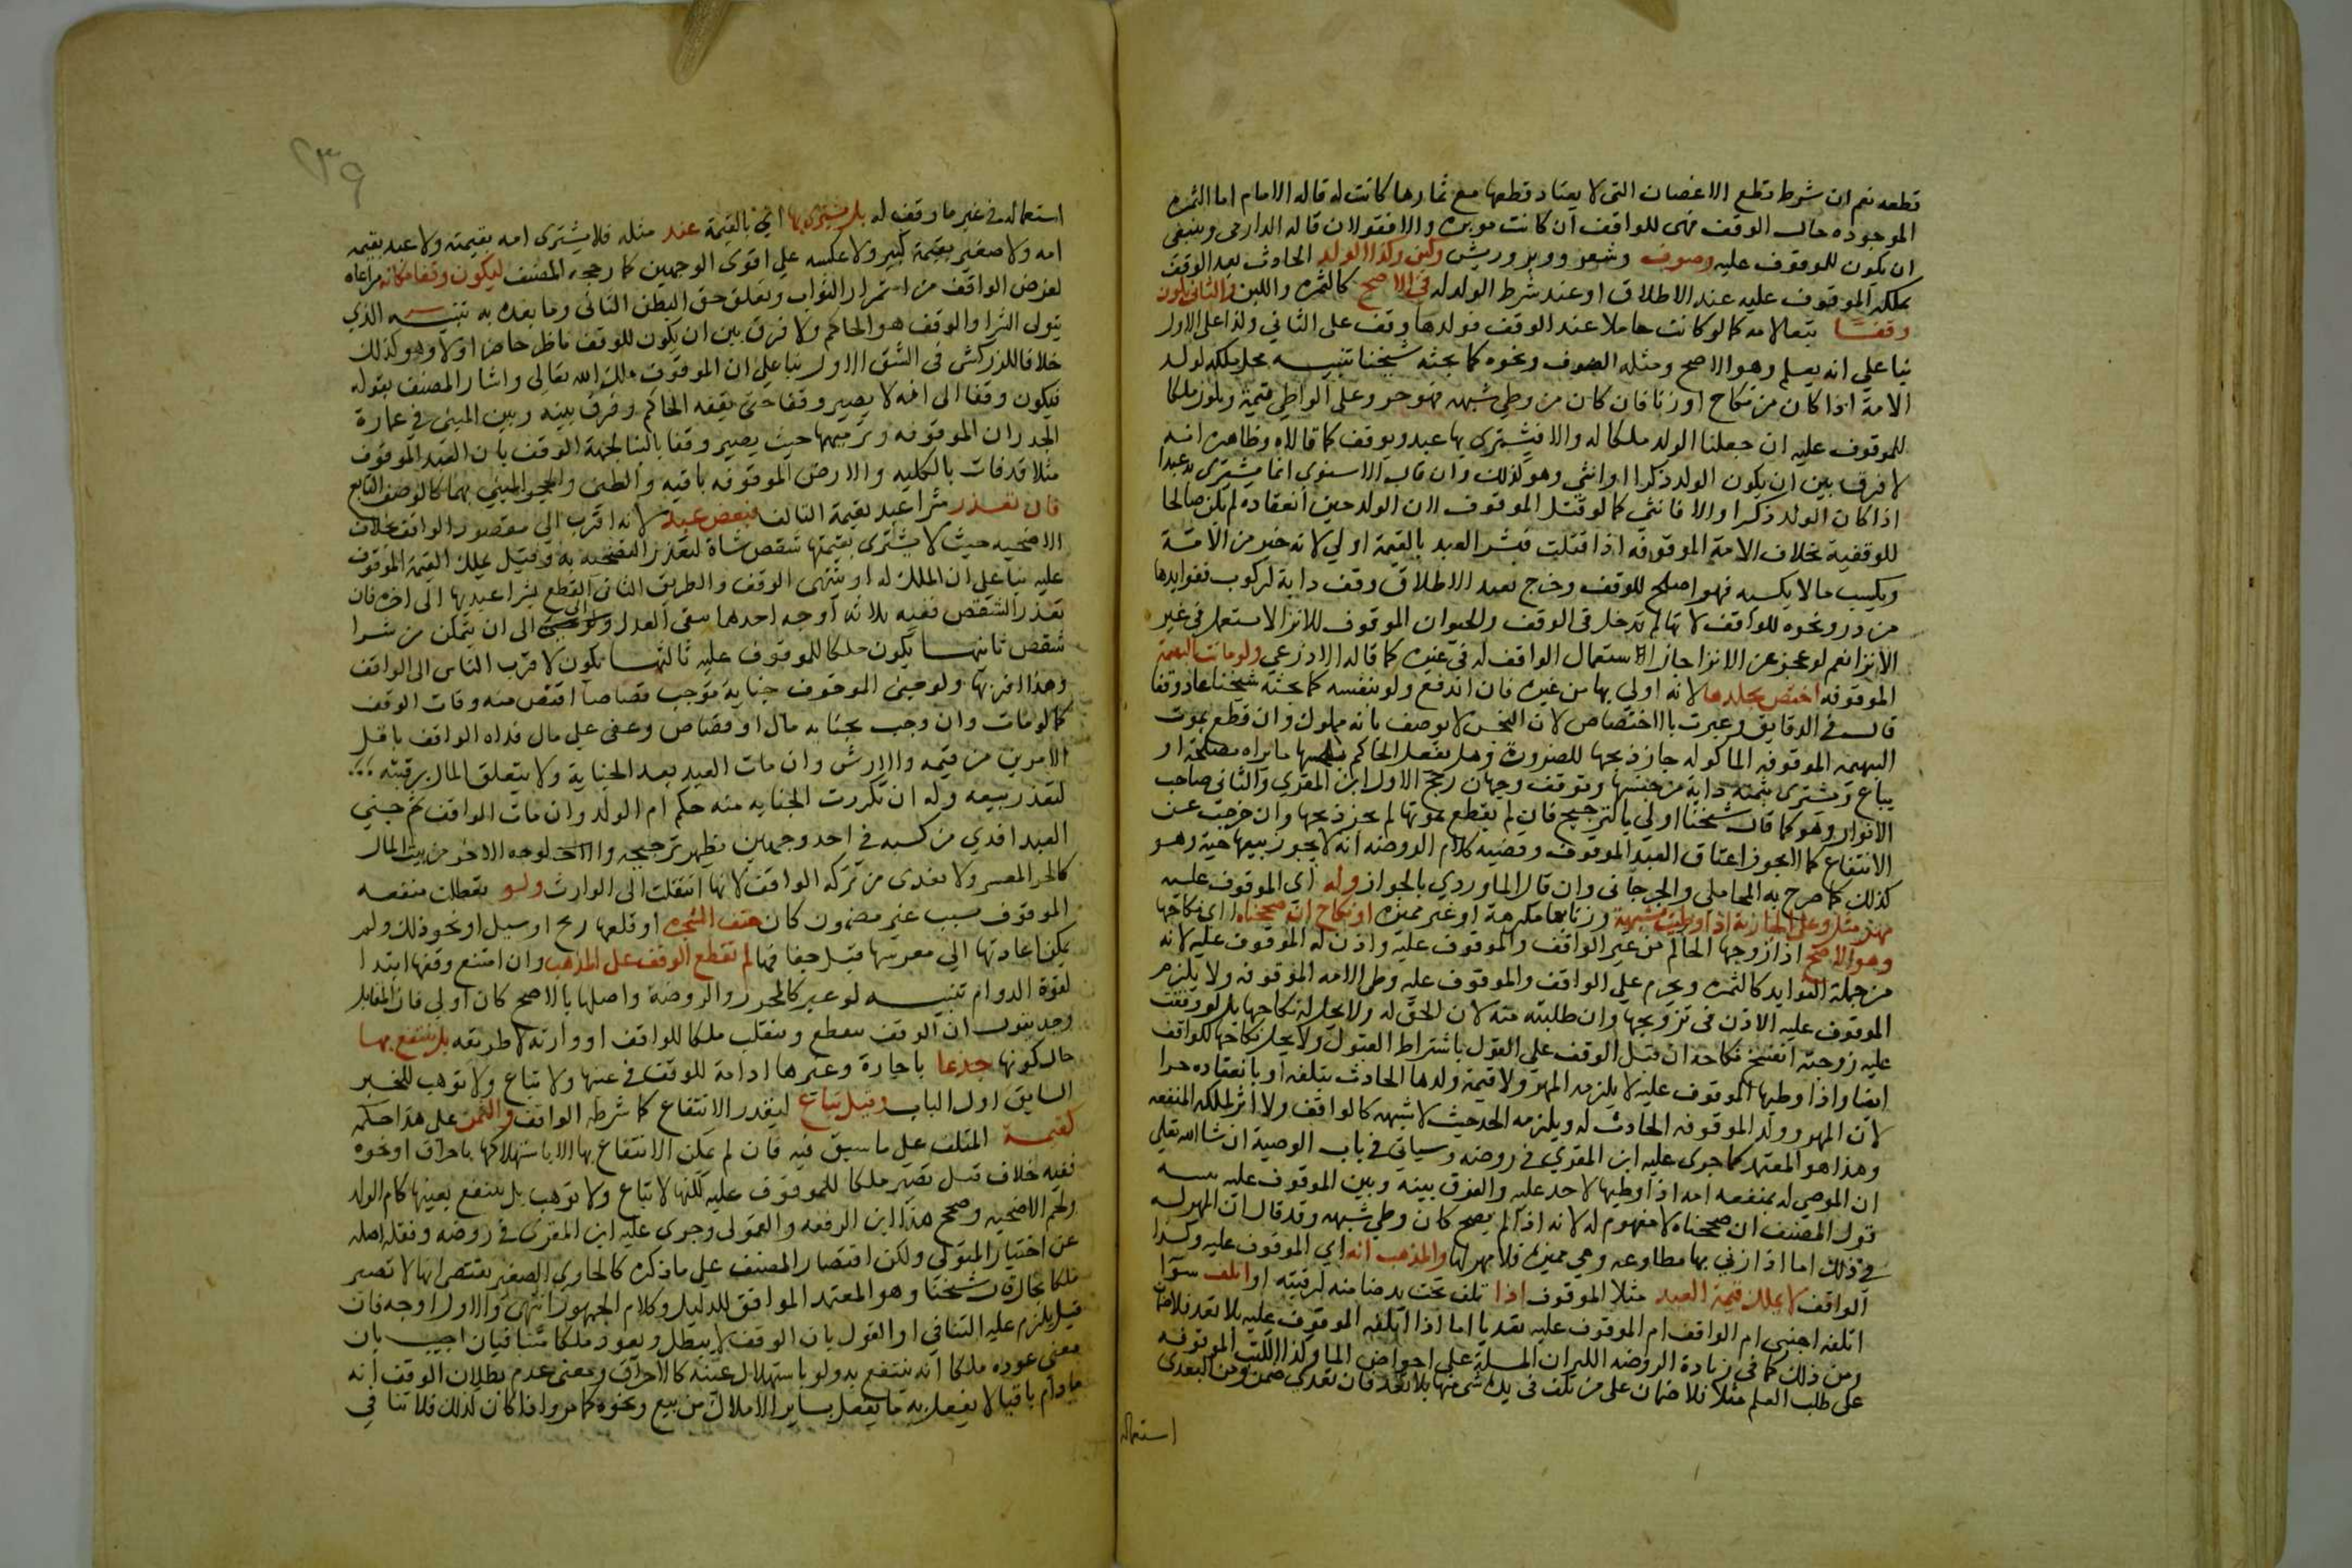 قطعه نعم ان شرط قطع الاغصان التى لا يعتاد قطعها مع ثمارها كانت له قاله الامام اما الثمره
الموجوده حال الوقف فهى للواقف ان كانت موبره والا فقولان قاله الدارمى وينبغى
ان تكون للموقوف عليه وصوف وشعر ووبر وريش ولبن وكذا الولد الحادث بعد الوقف
يملكه الموقوف عليه عند الاطلاق او عند شرط الولد له فى الاصح كالثمره واللبن والثانى يكون
وقفا تبعا لامه كما لو كانت حاملا عند الوقف فولدها وقف على الثاني وكذا على الاول
بنا على انه يعلم وهو الاصح ومثله الصوف ونحوه كما بحثه شيخنا تنبيه محل ملكه لولد
الامة اذا كان من نكاح او زنا فان كان من وطي شبهه فهو حر وعلى الواطي قيمته وتكون ملكا
للموقوف عليه ان جعلنا الولد ملكا له والا فيشترى بها عبد ويوقف كما قالاه وظاهره انه
لا فرق بين ان يكون الولد ذكرا او انثى وهو كذلك وان قال الاسنوي انما يشترى به عبدا
اذا كان الولد ذكرا والا فانثى كما لو قتل الموقوف لان الولد حين انعقاده لم يكن صالحا
للوقفية بخلاف الامة الموقوفه اذا قتلت فبشرا العبد بالقيمة اولي لانه خير من الامة
ويكسب ما لا يكسبه فهو اصلح للوقف وخرج بعبد الاطلاق وقف دابة لركوب ففوايدها
من در ونحوه للواقف لانها لم تدخل فى الوقف والحيوان الموقوف للانزا لا يستعمل فى غير
الانزا نعم لو عجز عن الانزا جاز استعمال الواقف له فى غيره كما قاله الاذرعي ولو ماتت البهيمة
الموقوفه اختص بجلدها لانه اولي بها من غيره فان اندبغ ولو بنفسه كما بحثه شيخنا عاد وقفا
قال فى الدقايق وعبرت بالاختصاص لان النجس لا يوصف بانه مملوك وان قطع بموت
البهيمة الموقوفه الماكوله جاز ذبحها للضرورة وهل يفعل الحاكم بلحمها ما يراه مصلحة او
يباع ويشترى بثمنه دابة من جنسها وتوقف وجهان رجح الاول ابن المقري والثانى صاحب
الانوار وهو كما قال شيخنا اولي بالترجيح فان لم يقطع بموتها لم يجز ذبحها وان خرجت عن
الانتفاع كما لا يجوز اعتاق العبد الموقوف وقضيه كلام الروضه انه لا يجوز بيعها حية وهو
كذلك كما صرح به المحاملى والجرجانى وان قال الماوردي بالجواز وله اي الموقوف عليه
مهر مثل وطي الجارية اذا وطيت بشبهة وزنا بها مكرهة او غير مميزه او نكاح ان صححناه اى نكاحها
وهو الاصح اذا زوجها الحاكم من غير الواقف والموقوف عليه واذن له الموقوف عليه لانه
من جملة الفوايد كالثمره ويحرم علي الواقف والموقوف عليه وطي الامه الموقوفه ولا يلزم
الموقوف عليه الاذن فى تزويجها وان طلبته منه لان الحق له ولا يحل له نكاحها بل لو وقفت
عليه زوجته انفسخ نكاحه ان قبل الوقف على القول باشتراط القبول ولا يحل نكاحها للواقف
ايضا واذا وطيها الموقوف عليه لا يلزمه المهر ولا قيمة ولدها الحادث بتلفه او بانعقاده حرا
لان المهر وولد الموقوفه الحادث له ويلزمه الحد حيث لا شبهه كالواقف ولا اثر لملكه المنفعه
وهذا هو المعتمد كما جرى عليه ابن المقري فى روضه وسياتي فى باب الوصية ان شا الله تعالى
ان الموصي له بمنفعه امه اذا وطيها لا حد عليه والفرق بينه وبين الموقوف عليه تنبيه
قول المصنف ان صححناه لا مفهوم له لانه اذا لم يصح كان وطي شبهه وقد قال ان المهر له
فى ذلك اما اذا زني بها مطاوعه وهي مميزه فلا مهر لها والمذهب انه اي الموقوف عليه وكذا
الواقف لا يملك قيمة العبد مثلا الموقوف اذا تلف تحت يد ضامنه لرقبته او اتلف سوا
اتلفه اجنبي ام الواقف ام الموقوف عليه تعديا اما اذا اتلفه الموقوف عليه بلا تعد فلا ضمان
ومن ذلك كما فى زيادة الروضه الكيزان المسبلة على احواض الما وكذا الكتب الموقوفه
على طلب العلم مثلا فلا ضمان على من تلف فى يده شى منها بلا تعد فان تعدي ضمن ومن التعدى
استعماله
٢٣٩
استعماله فى غير ما وقف له بل يشترى بها اي بالقيمة عبد مثله فلا يشترى امه بقيمته ولا عبد بقيمه
امه ولا صغير بقيمة كبير ولا عكسه علي اقوى الوجهين كما رجحه المصنف ليكون وقفا مكانه مراعاه
لغرض الواقف من استمرار الثواب وتعلق حق البطن الثانى وما بعده به تنبيه الذي
يتولى الشرا والوقف هو الحاكم ولا فرق بين ان يكون للوقف ناظر خاص او لا وهو كذلك
خلافا للزركشى فى الشق الاول بنا على ان الموقوف ملك الله تعالى واشار المصنف بقوله
فيكون وقفا الى انه لا يصير وقفا حتى يقفه الحاكم وفرق بينه وبين المبنى فى عمارة
الجدران الموقوفه وترميمها حيث يصير وقفا بالبنا لجهة الوقف بان العبد الموقوف
مثلا قد فات بالكليه والارض الموقوفه باقيه والطين والحجر المبني بهما كالوصف التابع
فان تعذر شرا عبد بقيمة التالف فبعض عبد لانه اقرب الي مقصود الواقف بخلاف
الاضحيه حيث لا يشترى بقيمتها شقص شاة لتعذر التضحيه به وقيل يملك القيمة الموقوف
عليه بنا على ان الملك له او ينتهى الوقف والطريق الثانى القطع بشرا عبد بها الى اخره فان
تعذر الشقص ففيه ثلاثه اوجه احدها يبقى البدل الى ان يتمكن من شرا
شقص ثانيها يكون ملكا للموقوف عليه ثالثها يكون لاقرب الناس الى الواقف
وهذا اقربها ولو جنى الموقوف جناية موجب قصاصا اقتص منه وفات الوقف
كما لو مات وان وجب بجنايه مال او قصاص وعفى على مال فداه الواقف باقل
الامرين من قيمه والارش وان مات العبد بعد الجناية ولا يتعلق المال برقبته
لتعذر بيعه وله ان تكررت الجنايه منه حكم ام الولد وان مات الواقف ثم جنى
العبد افدي من كسبه فى احد وجهين يظهر ترجيحه والوجه الاخر من بيت المال
كالحر المعسر ولا يفدى من تركه الواقف لانها انتقلت الى الوارث ولو تعطلت منفعه
الموقوف بسبب غير مضمون كان جفت الشجرة او قلعها ريح او سيل او نحو ذلك ولم
يمكن اعادتها الي مغرسها قبل جفافها لم ينقطع الوقف على المذهب وان امتنع وقفها ابتدا
لقوة الدوام تنبيه لو عبر كالمحرر والروضة واصلها بالاصح كان اولي فان المقابل
وجه يقول ان الوقف ينقطع وينقلب ملكا للواقف او وارثه لا طريقه بل ينتفع بها
حال كونها جذعا باجارة وغيرها ادامة للوقف فى عينها ولا تباع ولا توهب للخبر
السابق اول الباب وقيل تباع لتعذر الانتفاع كما شرطه الواقف والثمن على هذا حكمه
كقيمة المتلف على ما سبق فيه فان لم يمكن الانتفاع بها الا باستهلاكها باحراق او نحوه
ففيه خلاف قيل تصير ملكا للموقوف عليه لكنها لا تباع ولا توهب بل ينتفع بعينها كام الولد
ولحم الاضحيه وصحح هذا ابن الرفعه والقمولى وجرى عليه ابن المقرى فى روضه ونقله اصله
عن اختيار المتولي ولكن اقتصار المصنف على ما ذكره كالحاوي الصغير يقتضى انها لا تصير
ملكا بحال قال شيخنا وهو المعتمد الموافق للدليل وكلام الجمهور انتهى والاول اوجه فان
قيل يلزم عليه التنافي او القول بان الوقف لا يبطل ويعود ملكا متنافيان اجيب بان
معنى عوده ملكا انه ينتفع به ولو باستهلاك عينه كالاحراق ومعنى عدم بطلان الوقف انه
ما دام باقيا لا يفعل به ما يفعل بساير الاملاك من بيع ونحوه كما مر واذا كان كذلك فلا تنافي